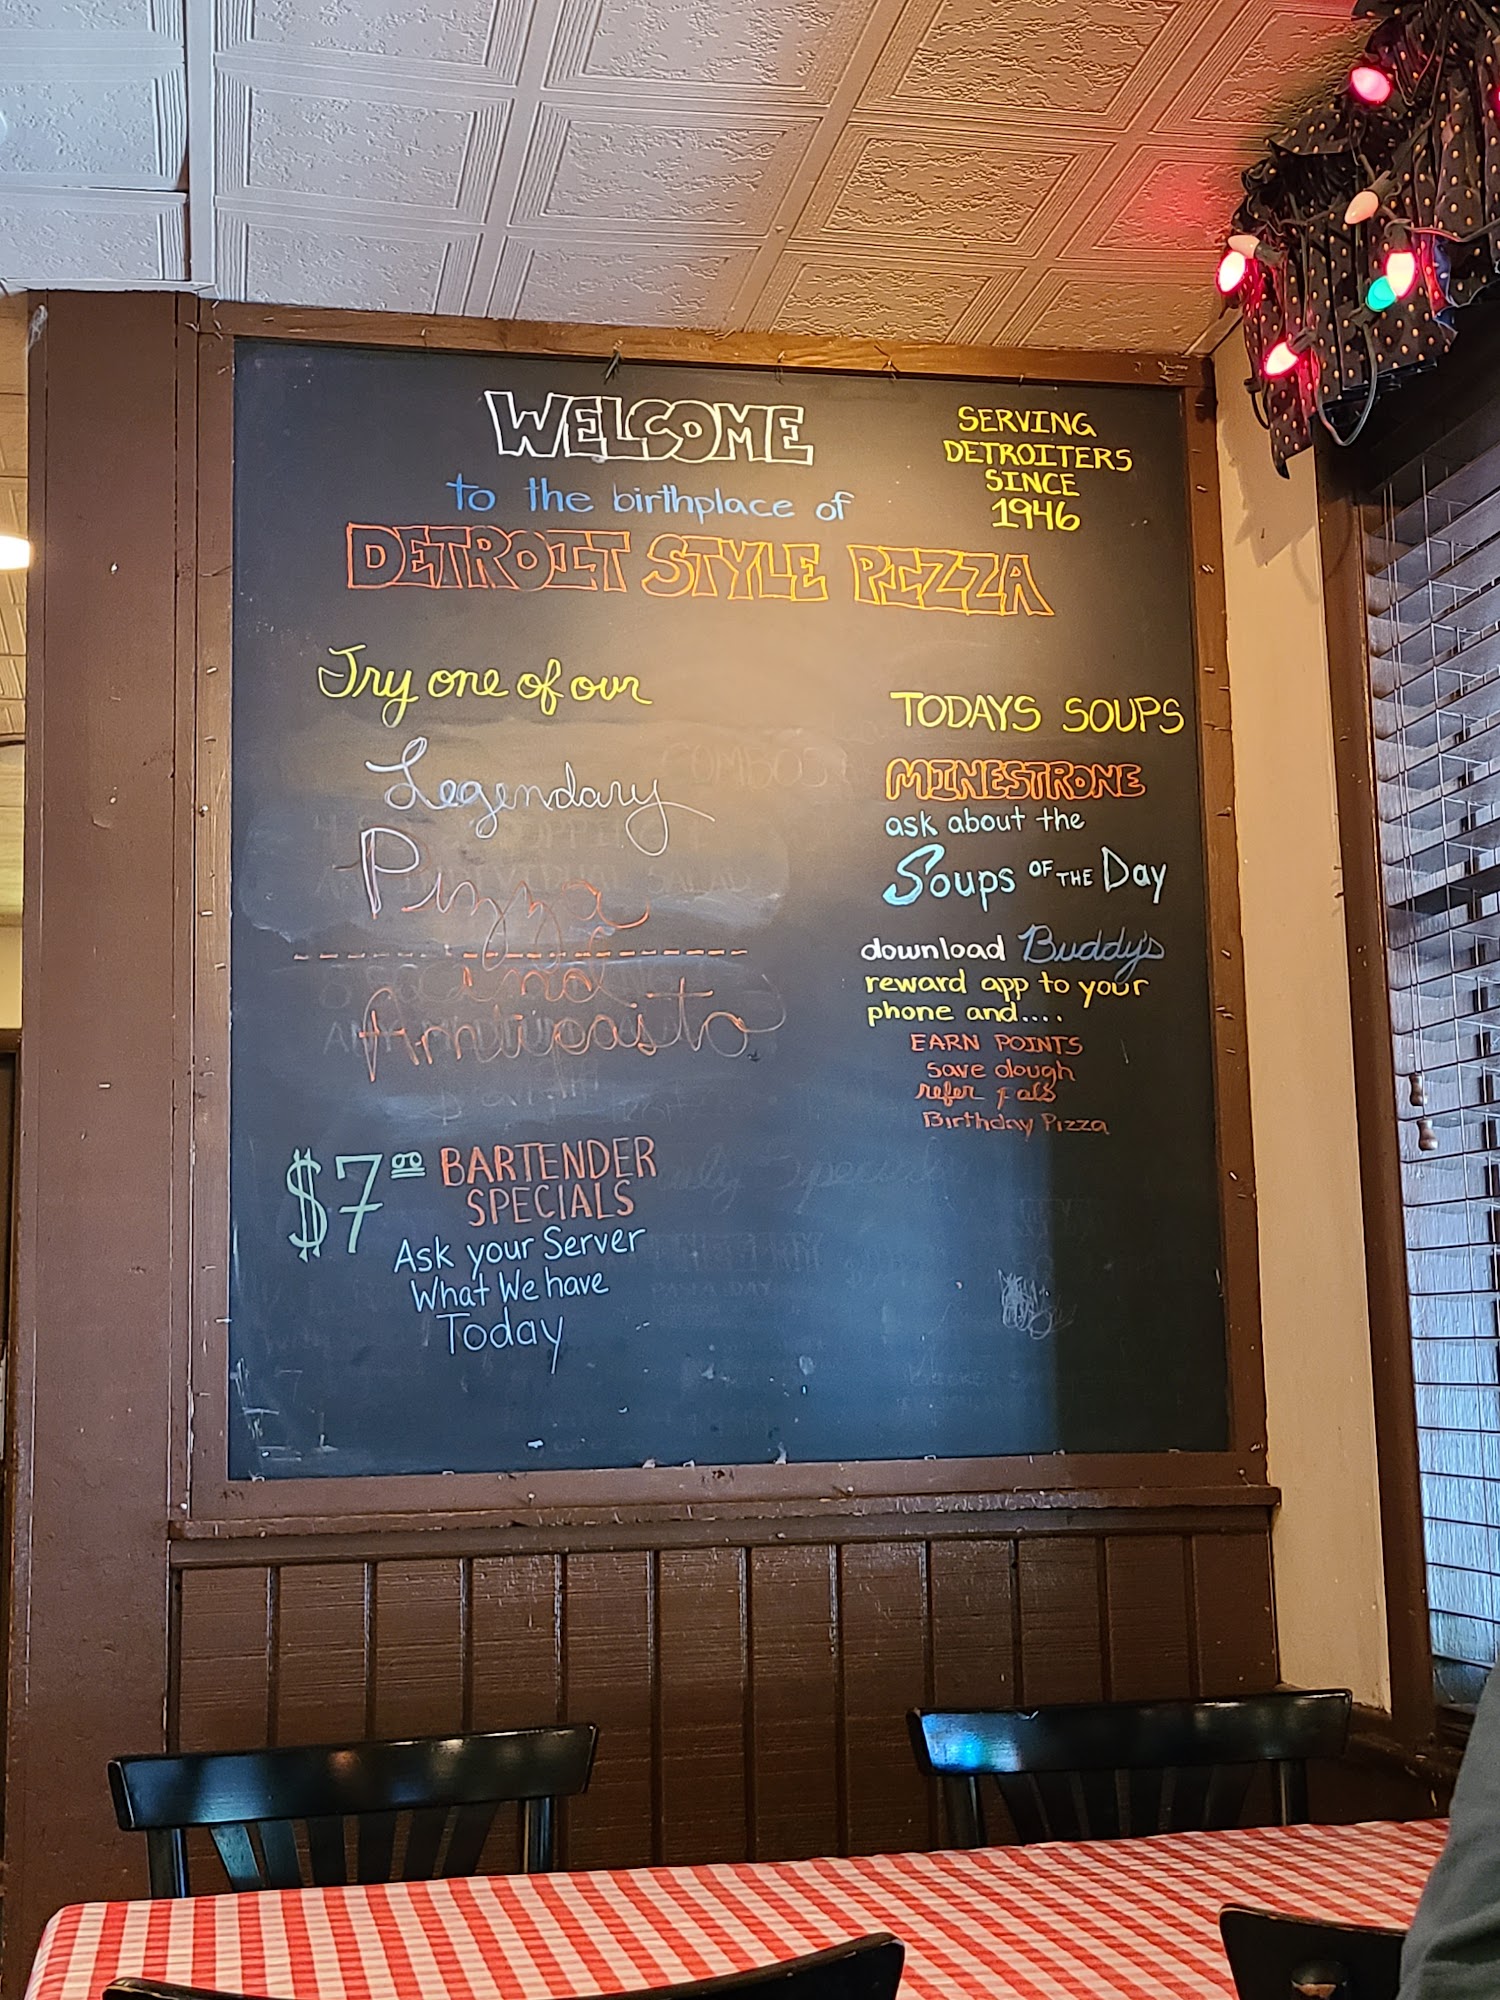 WELCOME
to the birthplace of
DETROIT STYLE PIZZA
SERVING
DETROITERS
SINCE
1946
Try one of our
Legendary
Pizza
and
Antipasto
$7.00 BARTENDER
SPECIALS
Ask your Server
What We have
Today
TODAYS SOUPS
MINESTRONE
ask about the
Soups OF THE Day
download Buddy's
reward app to your
phone and....
EARN POINTS
save dough
refer pals
Birthday Pizza
COMBOS